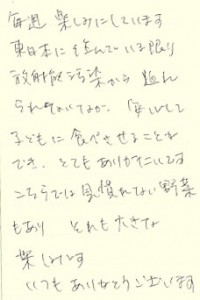 毎週 楽しみにしています
東日本に住んでいる限り
放射能汚染から 逃れ
られないですが、安心して
子どもに 食べさせることが
でき、とてもありがたいです
こちらでは見慣れない野菜
もあり それも大きな
楽しみです
いつもありがとうございます